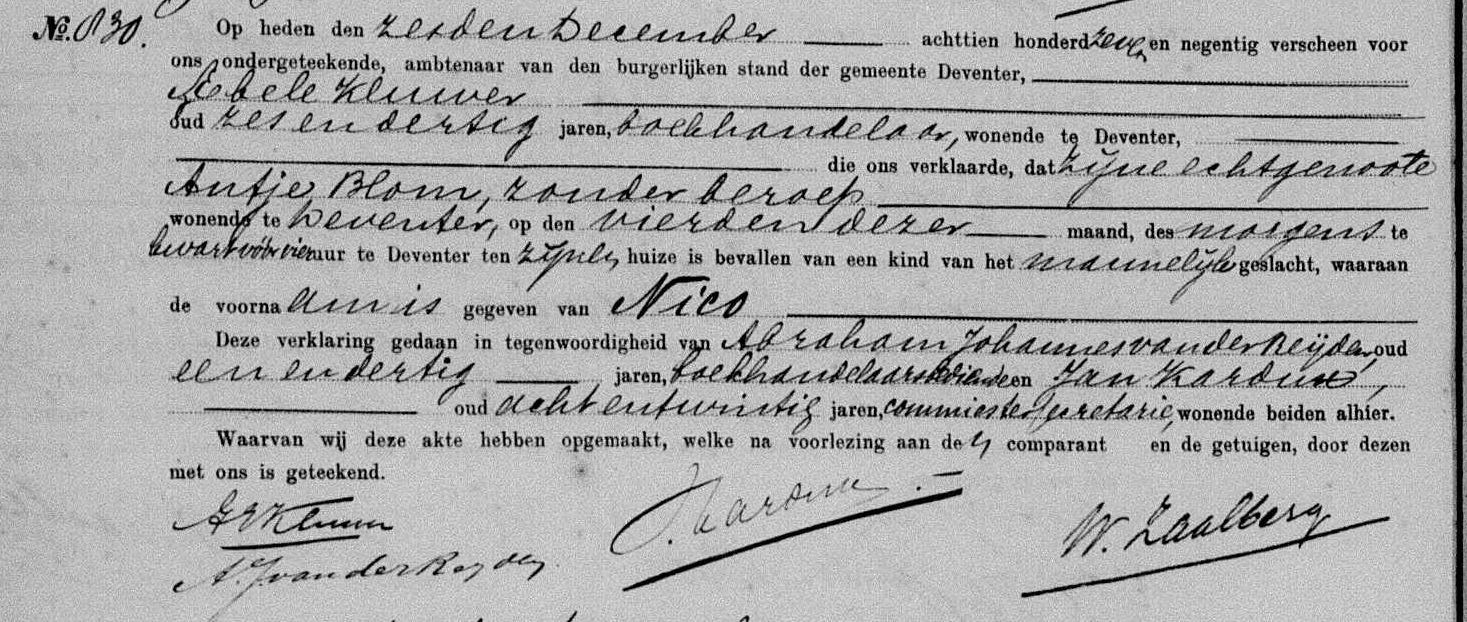 No. 830. Op heden den zesden December achttien honderd zeven en negentig verscheen voor
ons ondergeteekende, ambtenaar van den burgerlijken stand der gemeente Deventer,
Aebele Kluwer
oud zes en dertig jaren, boekhandelaar, wonende te Deventer,
die ons verklaarde, dat zijne echtgenoote
Antje Blom, zonder beroep
wonende te Deventer, op den vierden dezer maand, des morgens te
kwart vóór vier uur te Deventer ten zijnen huize is bevallen van een kind van het mannelijk geslacht, waaraan
de voornaam is gegeven van Nico
Deze verklaring gedaan in tegenwoordigheid van Abraham Johannes van der Reijden, oud
een en dertig jaren, boekhandelaarsbediende en Jan Kardux,
oud acht en twintig jaren, commies ter secretarie, wonende beiden alhier.
Waarvan wij deze akte hebben opgemaakt, welke na voorlezing aan den comparant en de getuigen, door dezen
met ons is geteekend.
AE Kluwer
J. Kardux.
W. Zaalberg
A. J. van der Reyden